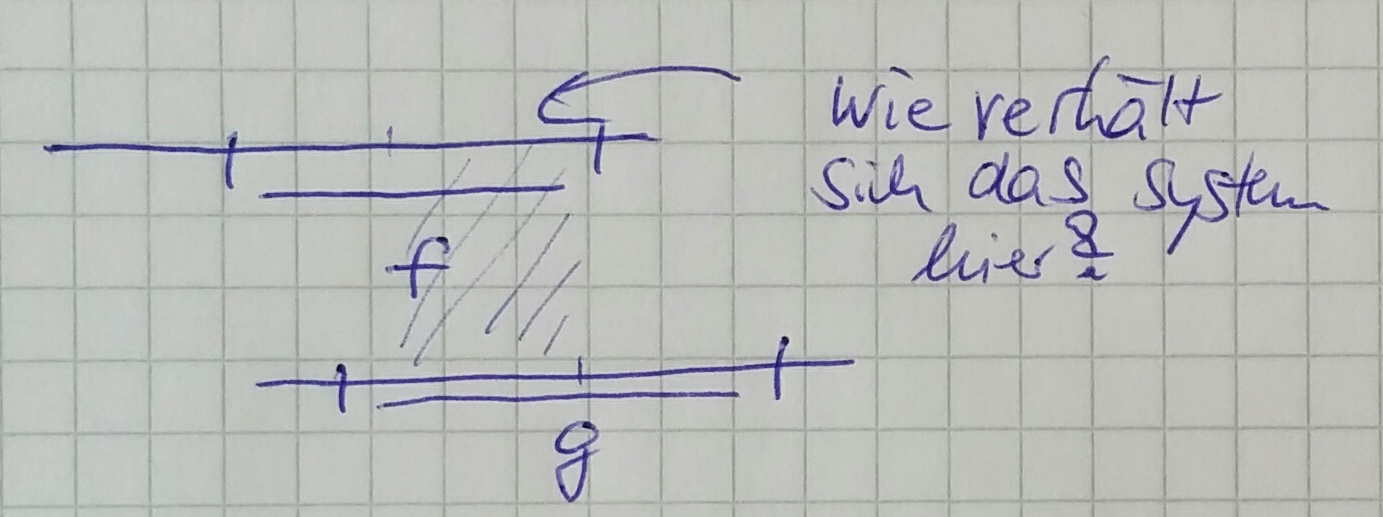 Wie verhält
sich das System
hier?
f
g